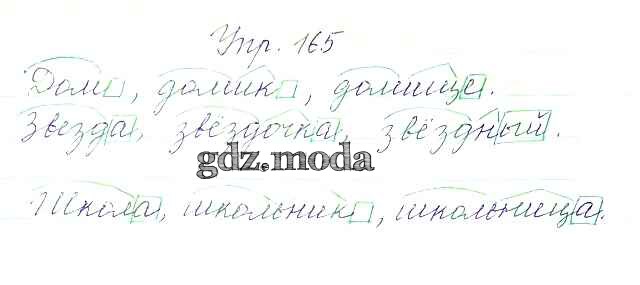 Упр. 165
Дом, домик, домище.
Звезда, звёздочка, звёздный.
gdz.moda
Школа, школьник, школьница.